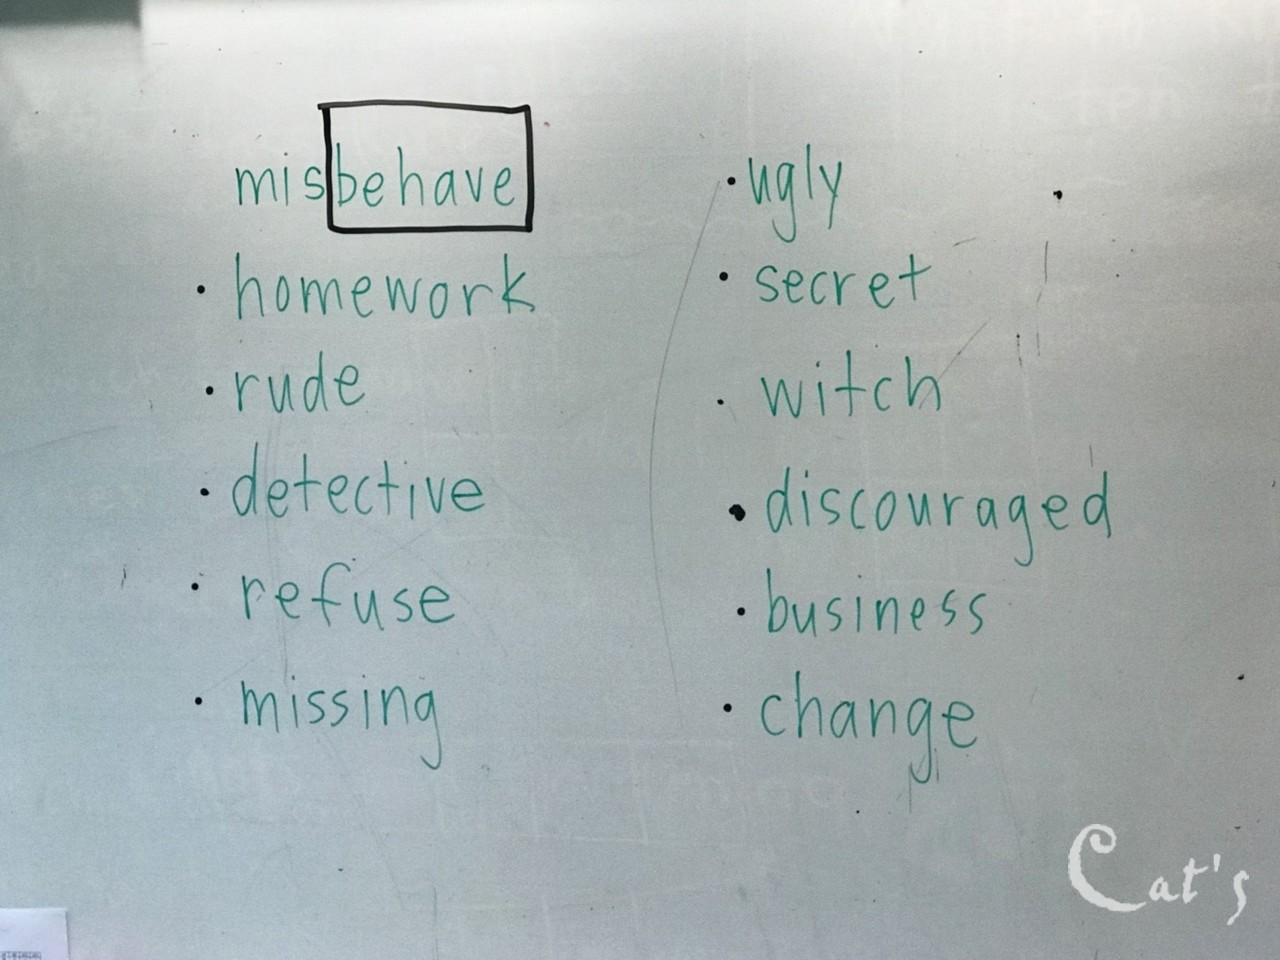 misbehave
• homework
• rude
• detective
• refuse
• missing
• ugly
• secret
• witch
• discouraged
• business
• change
Cat's